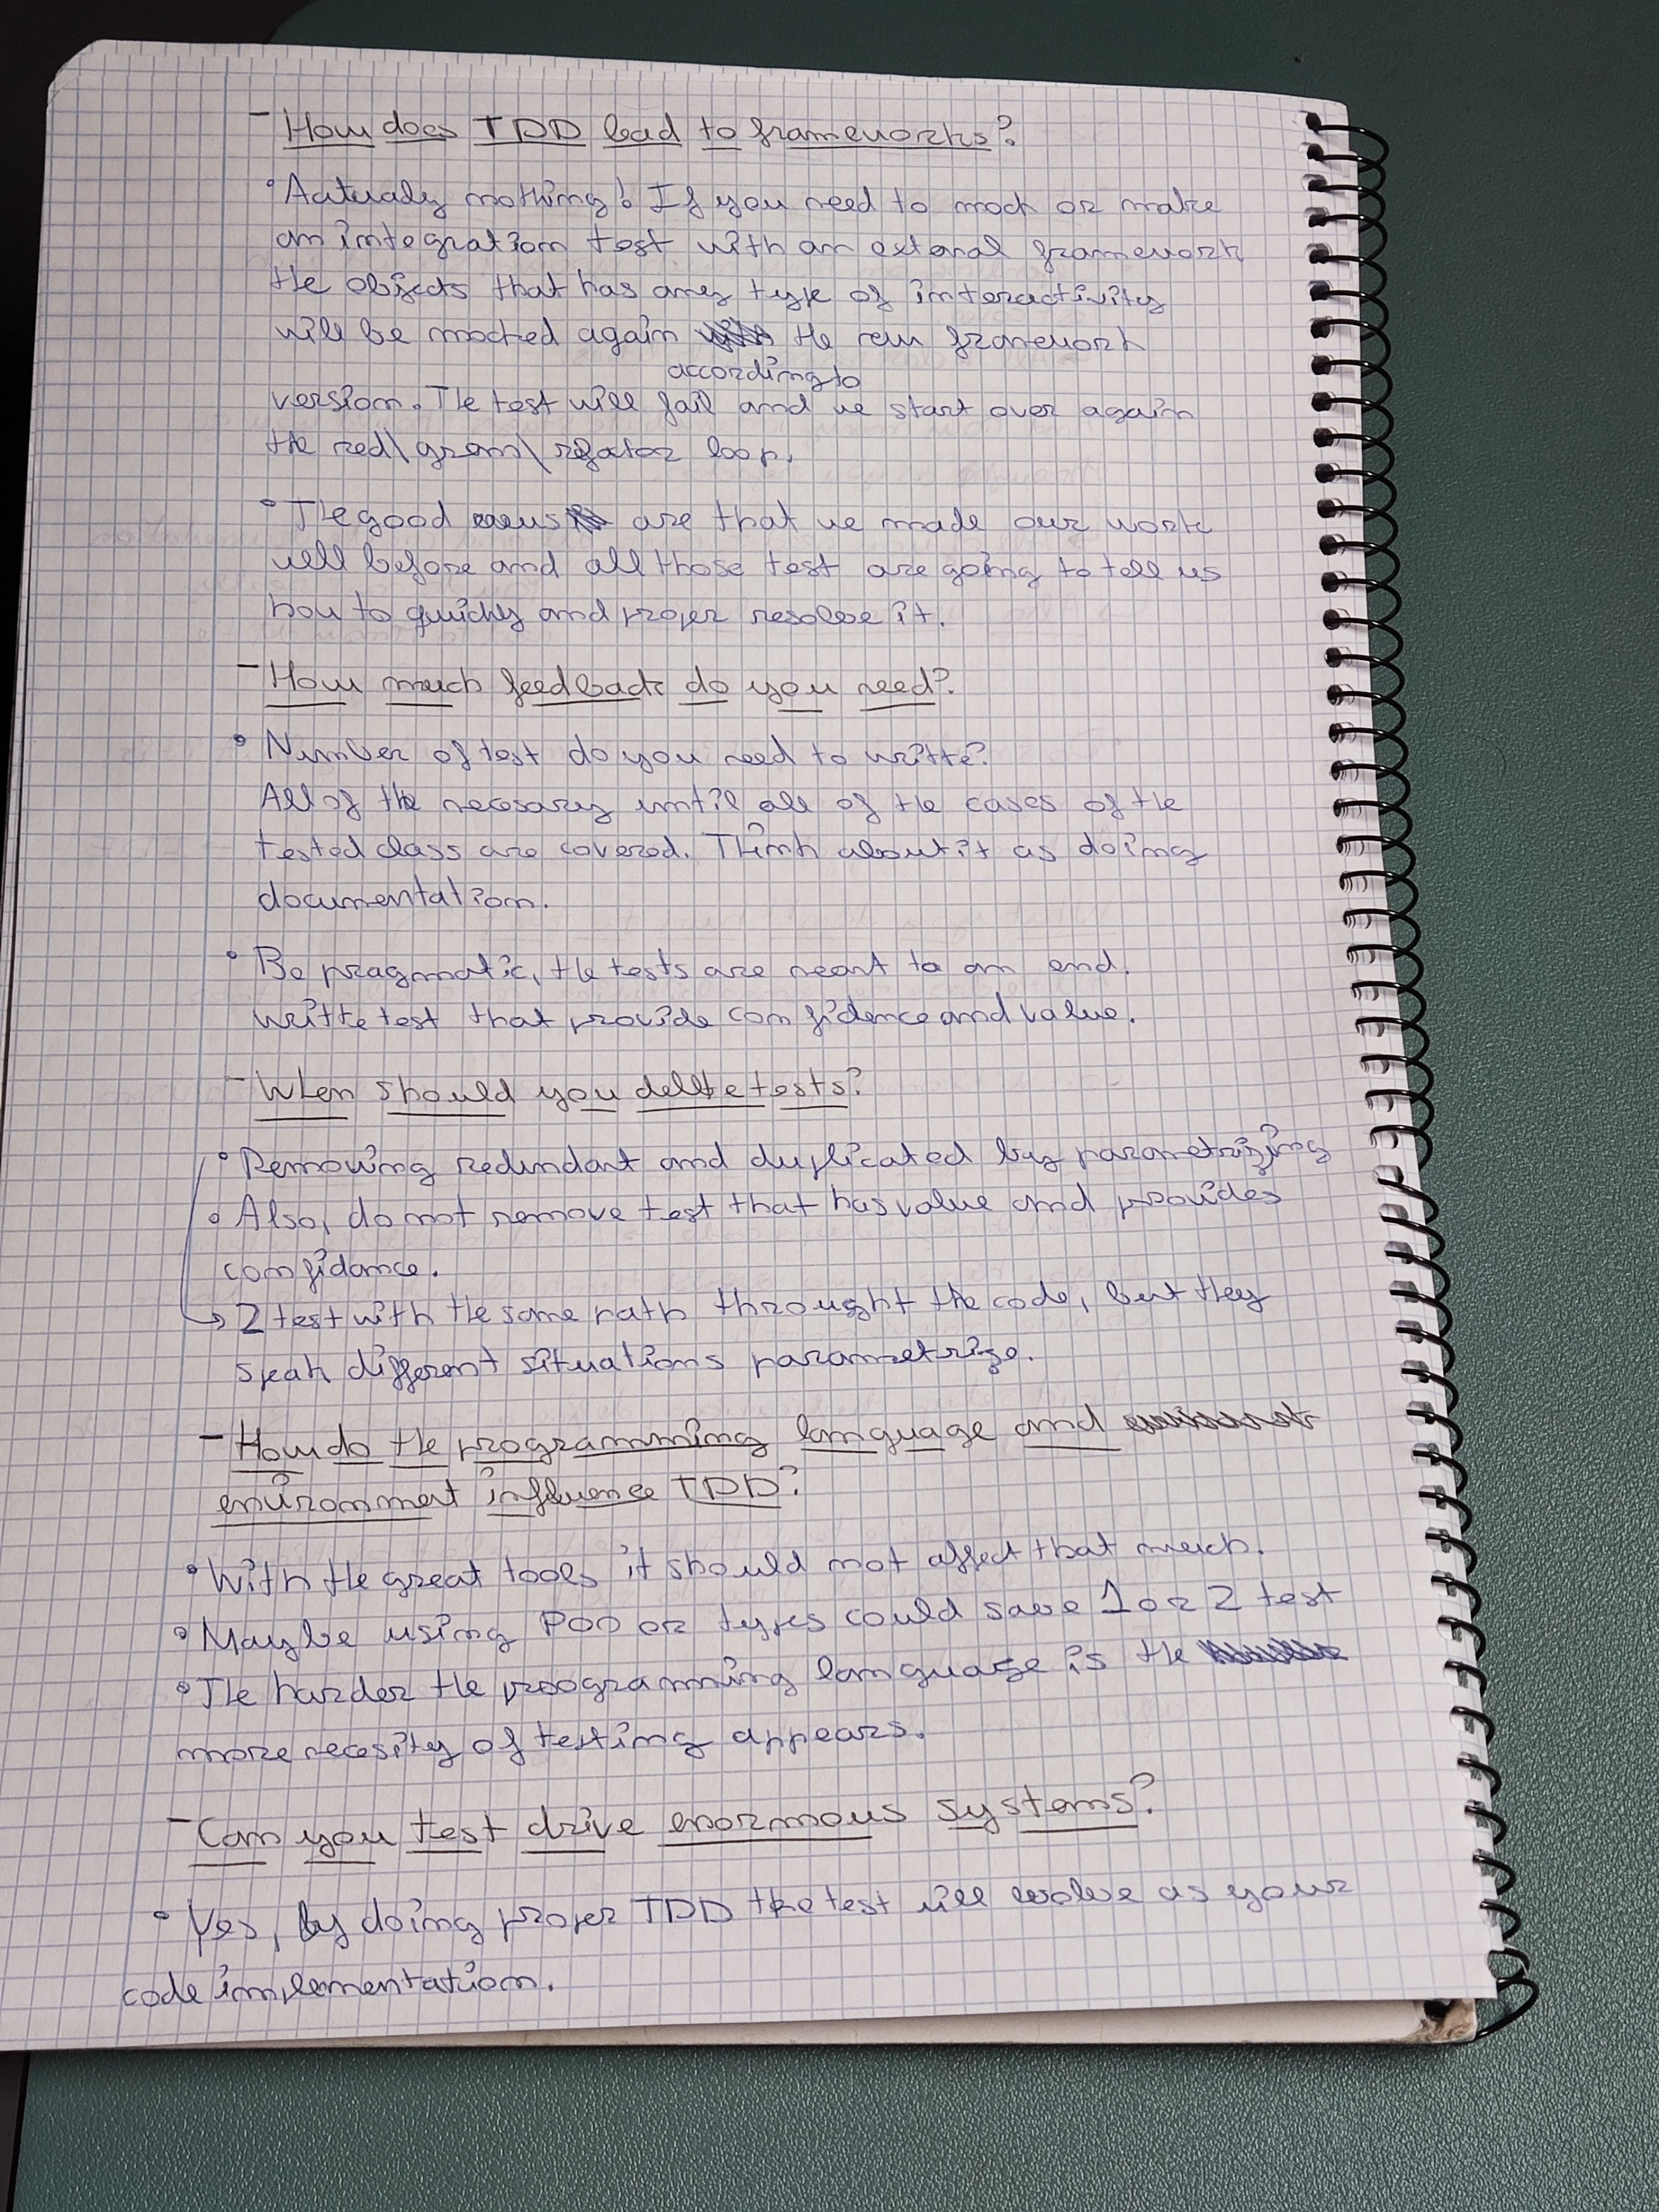 - How does TDD lead to frameworks?
• Actualy nothing! If you need to mock or make
an integration test with an extenal framework
the objects that has any type of interactivity
will be mocked again the new framework
according to
version. The test will fail and we start over again
the red\green\refator loop.
• The good news are that we made our work
well before and all those test are going to tell us
how to quickly and proper resolve it.
- How much feedback do you need?
• Number of test do you need to writte?
All of the necesary until all of the cases of the
tested class are covered. Think about it as doing
documentation.
• Be pragmatic, the tests are meant to an end.
writte test that provide confidence and value.
- When should you delete tests?
• Removing redundant and duplicated by parametrizing
• Also, do not remove test that has value and provides
confidance.
→ 2 test with the same path throught the code, but they
speak different situations parametrize.
- How do the programming language and
environment influence TDD?
• With the great tools it should not affect that much.
• Maybe using POO or types could save 1 or 2 test
• The harder the programming language is the
more necesity of testing appears.
- Can you test drive enormous systems?
• Yes, by doing proper TDD the test will evolve as your
code implementation.